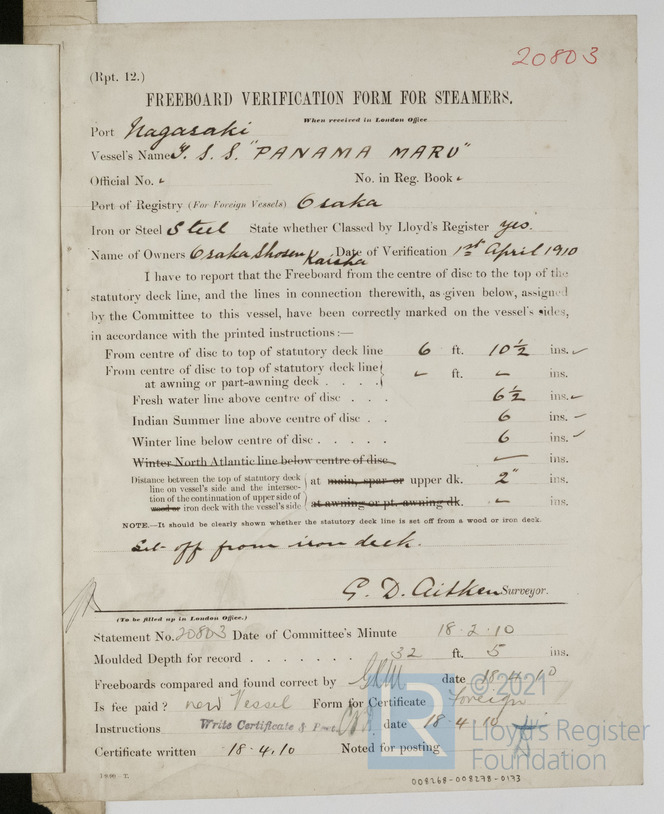 20803
(Rpt. 12.)
FREEBOARD VERIFICATION FORM FOR STEAMERS.
When received in London Office
Port Nagasaki
Vessel's Name T. S. S. "PANAMA MARU"
Official No.
No. in Reg. Book
Port of Registry (For Foreign Vessels) Osaka
Iron or Steel Steel State whether Classed by Lloyd's Register yes.
Name of Owners Osaka Shosen Kaisha Date of Verification 1st April 1910
I have to report that the Freeboard from the centre of disc to the top of the
statutory deck line, and the lines in connection therewith, as given below, assigned
by the Committee to this vessel, have been correctly marked on the vessel's sides,
in accordance with the printed instructions:—
From centre of disc to top of statutory deck line 6 ft. 10 1/2 ins.
From centre of disc to top of statutory deck line
at awning or part-awning deck . . . . ft. ins.
Fresh water line above centre of disc . . . 6 1/2 ins.
Indian Summer line above centre of disc . . 6 ins.
Winter line below centre of disc . . . . . 6 ins.
Winter North Atlantic line below centre of disc . ins.
Distance between the top of statutory deck
line on vessel's side and the intersec-
tion of the continuation of upper side of
wood or iron deck with the vessel's side
at main, spar or upper dk. 2" ins.
at awning or pt. awning dk. ins.
NOTE.—It should be clearly shown whether the statutory deck line is set off from a wood or iron deck.
Set off from iron deck.
G. D. Aitken Surveyor.
(To be filled up in London Office.)
Statement No. 20803 Date of Committee's Minute 18.2.10
Moulded Depth for record . . . . . . . 32 ft. 5 ins.
Freeboards compared and found correct by date 18.4.10
Is fee paid? new Vessel Form for Certificate Foreign
Instructions Write Certificate & Post date 18.4.10
Certificate written 18.4.10 Noted for posting
008268-008278-0173
© 2021
Lloyd's Register
Foundation